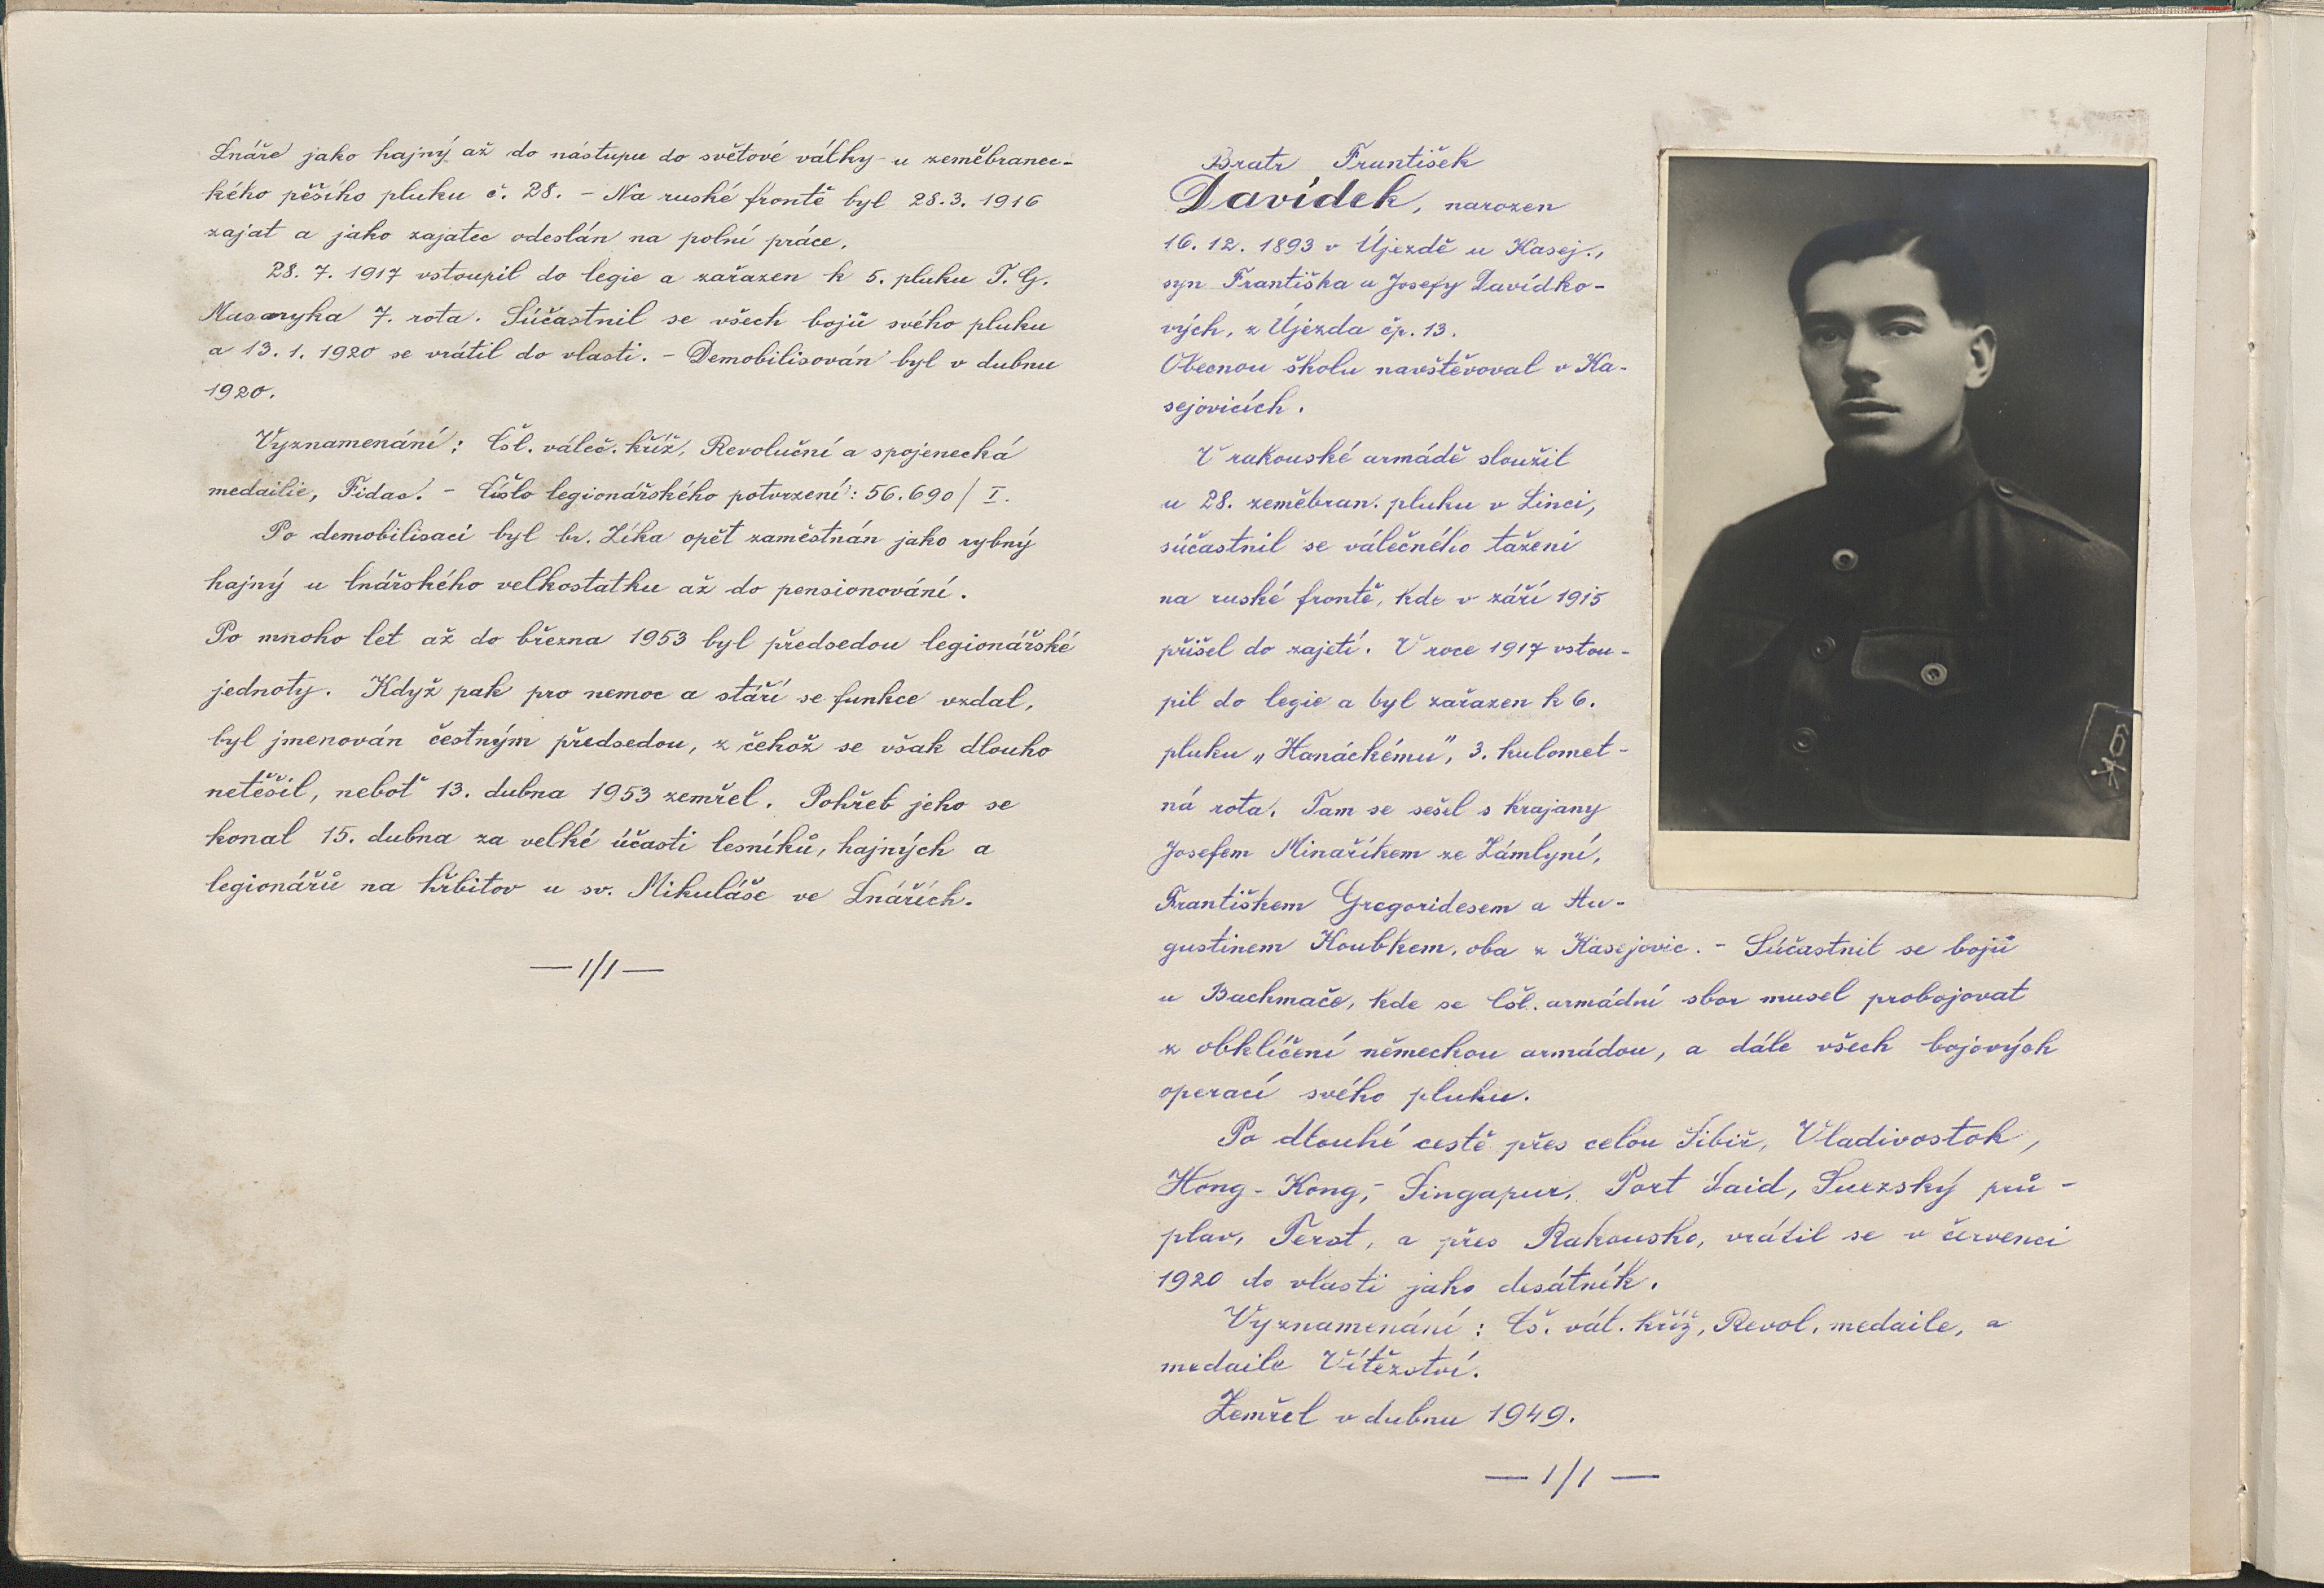 Lnáře jako hajný až do nástupu do světové války u zeměbranec-
kého pěšího pluku č. 28. - Na ruské frontě byl 28.3.1916
zajat a jako zajatec odeslán na polní práce.
28.7.1917 vstoupil do legie a zařazen k 5. pluku T. G.
Masaryka 7. rota. Súčastnil se všech bojů svého pluku
a 13.1.1920 se vrátil do vlasti. - Demobilisován byl v dubnu
1920.
Vyznamenání: Čsl. váleč. kříž, Revoluční a spojenecká
medailie, Fidac. - Číslo legionářského potvrzení: 56.690/I.
Po demobilisaci byl br. Zíka opět zaměstnán jako rybný
hajný u lnářského velkostatku až do pensionování.
Po mnoho let až do března 1953 byl předsedou legionářské
jednoty. Když pak pro nemoc a stáří se funkce vzdal,
byl jmenován čestným předsedou, z čehož se však dlouho
netěšil, neboť 13. dubna 1953 zemřel. Pohřeb jeho se
konal 15. dubna za velké účasti lesníků, hajných a
legionářů na hřbitov u sv. Mikuláše ve Lnářích.
— 1/1 —
Bratr František
Davídek, narozen
16.12.1893 v Újezdě u Kasej.,
syn Františka a Josefy Davídko-
vých, z Újezda čp. 13.
Obecnou školu navštěvoval v Ka-
sejovicích.
V rakouské armádě sloužil
u 28. zeměbran. pluku v Linci,
súčastnil se válečného tažení
na ruské frontě, kde v září 1915
přišel do zajetí. V roce 1917 vstou-
pil do legie a byl zařazen k 6.
pluku „Hanáckému", 3. kulomet-
ná rota. Tam se sešel s krajany
Josefem Minaříkem ze Zámlyní,
Františkem Gregoridesem a Au-
gustinem Koubkem, oba z Kasejovic. - Súčastnil se bojů
u Bachmače, kde se čsl. armádní sbor musel probojovat
z obklíčení německou armádou, a dále všech bojových
operací svého pluku.
Po dlouhé cestě přes celou Sibiř, Vladivostok,
Hong-Kong, - Singapur, Port Said, Suezský prů-
plav, Terst, a přes Rakousko, vrátil se v červenci
1920 do vlasti jako desátník.
Vyznamenání: Čs. vál. kříž, Revol. medaile, a
medaile Vítězství.
Zemřel v dubnu 1949.
— 1/1 —
6